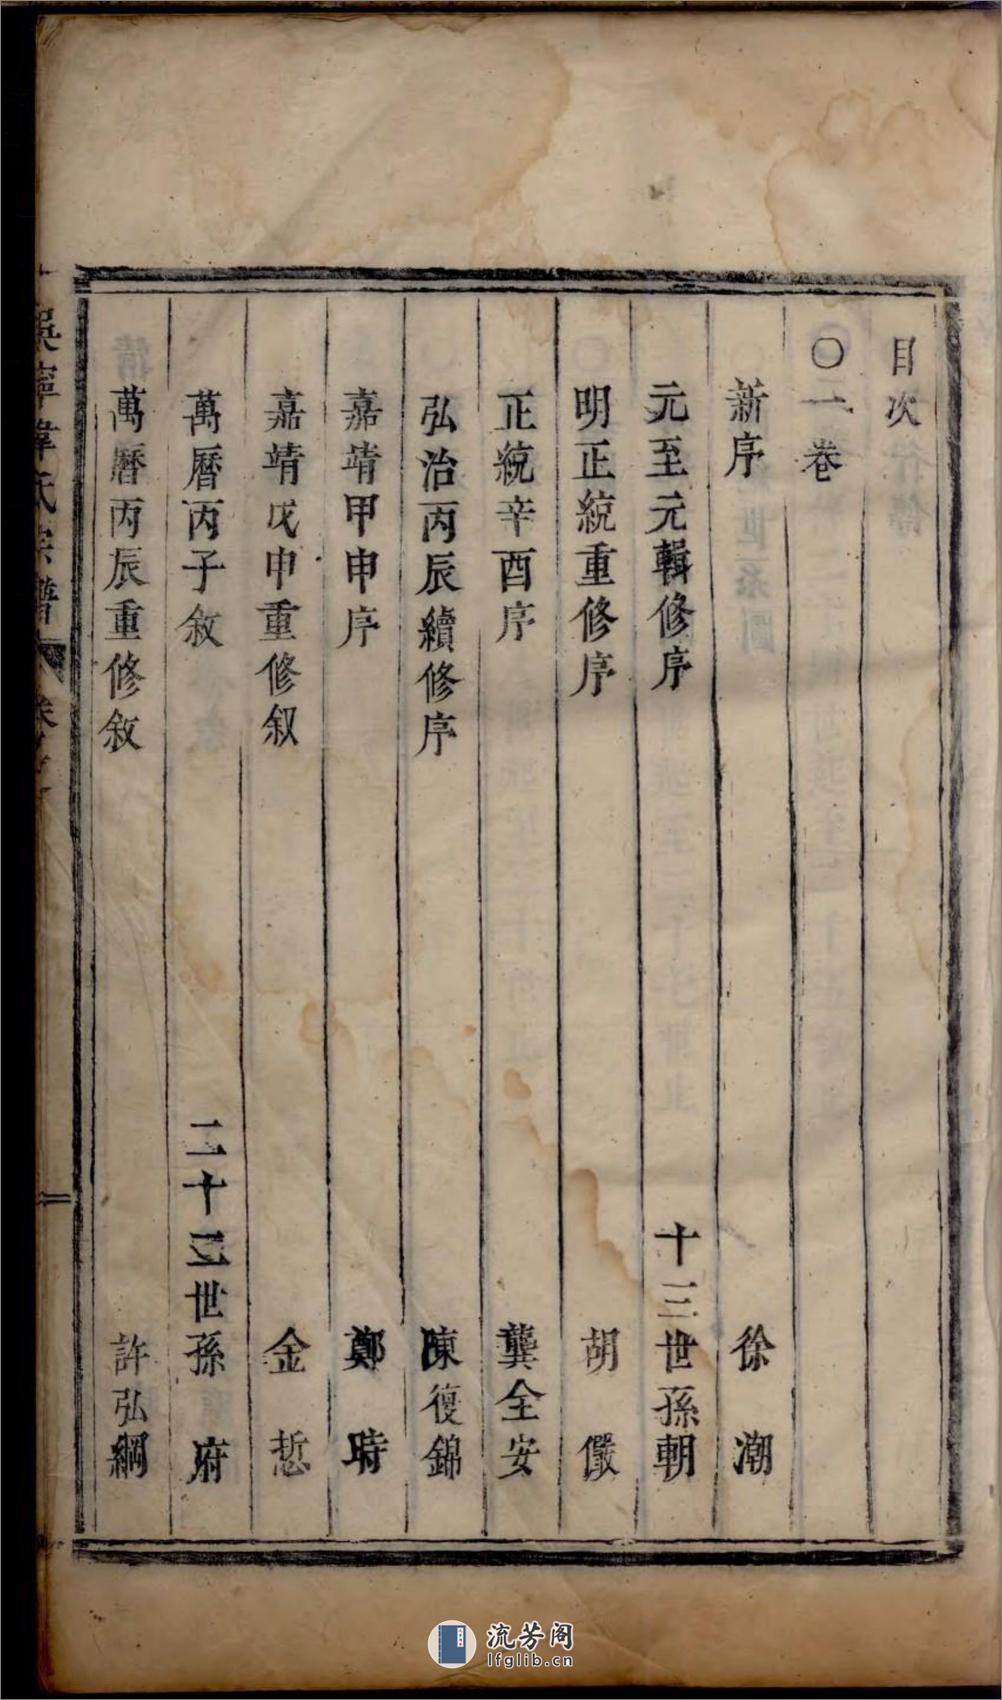 目次
〇一卷
新序 徐潮
元至元輯修序 十三世孫朝
明正統重修序 胡儼
正統辛酉序 龔全安
弘治丙辰續修序 陳復錦
嘉靖甲申序 鄭時
嘉靖戊申重修叙 金悊
萬曆丙子敘 二十三世孫府
萬曆丙辰重修敘 許弘綱
氏宗譜
流芳阁
lfglib.cn